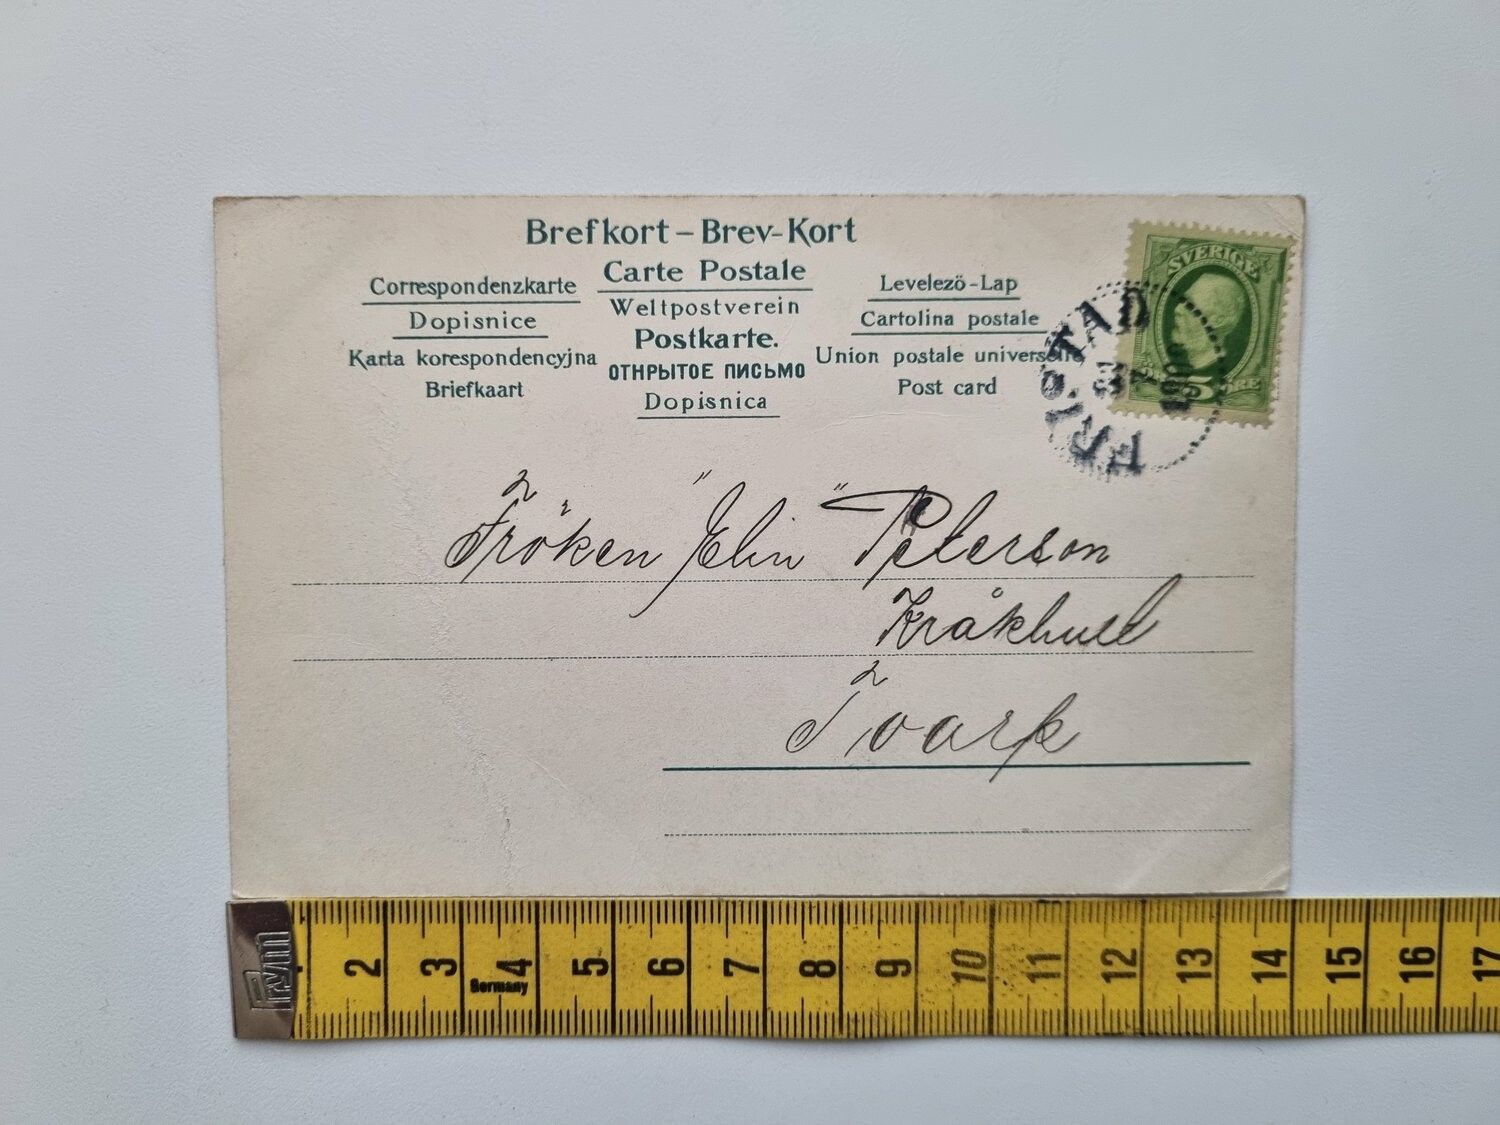 Brefkort – Brev-Kort
Carte Postale
Weltpostverein
Postkarte.
ОТКРЫТОЕ ПИСЬМО
Dopisnica
Correspondenzkarte
Dopisnice
Karta korespondencyjna
Briefkaart
Levelező-Lap
Cartolina postale
Union postale universelle
Post card
SVERIGE
5 ÖRE
FRISTAD
Fröken "Elin" Peterson
Kråkhult
Tvark
Prym
Germany
2 3 4 5 6 7 8 9 10 11 12 13 14 15 16 17